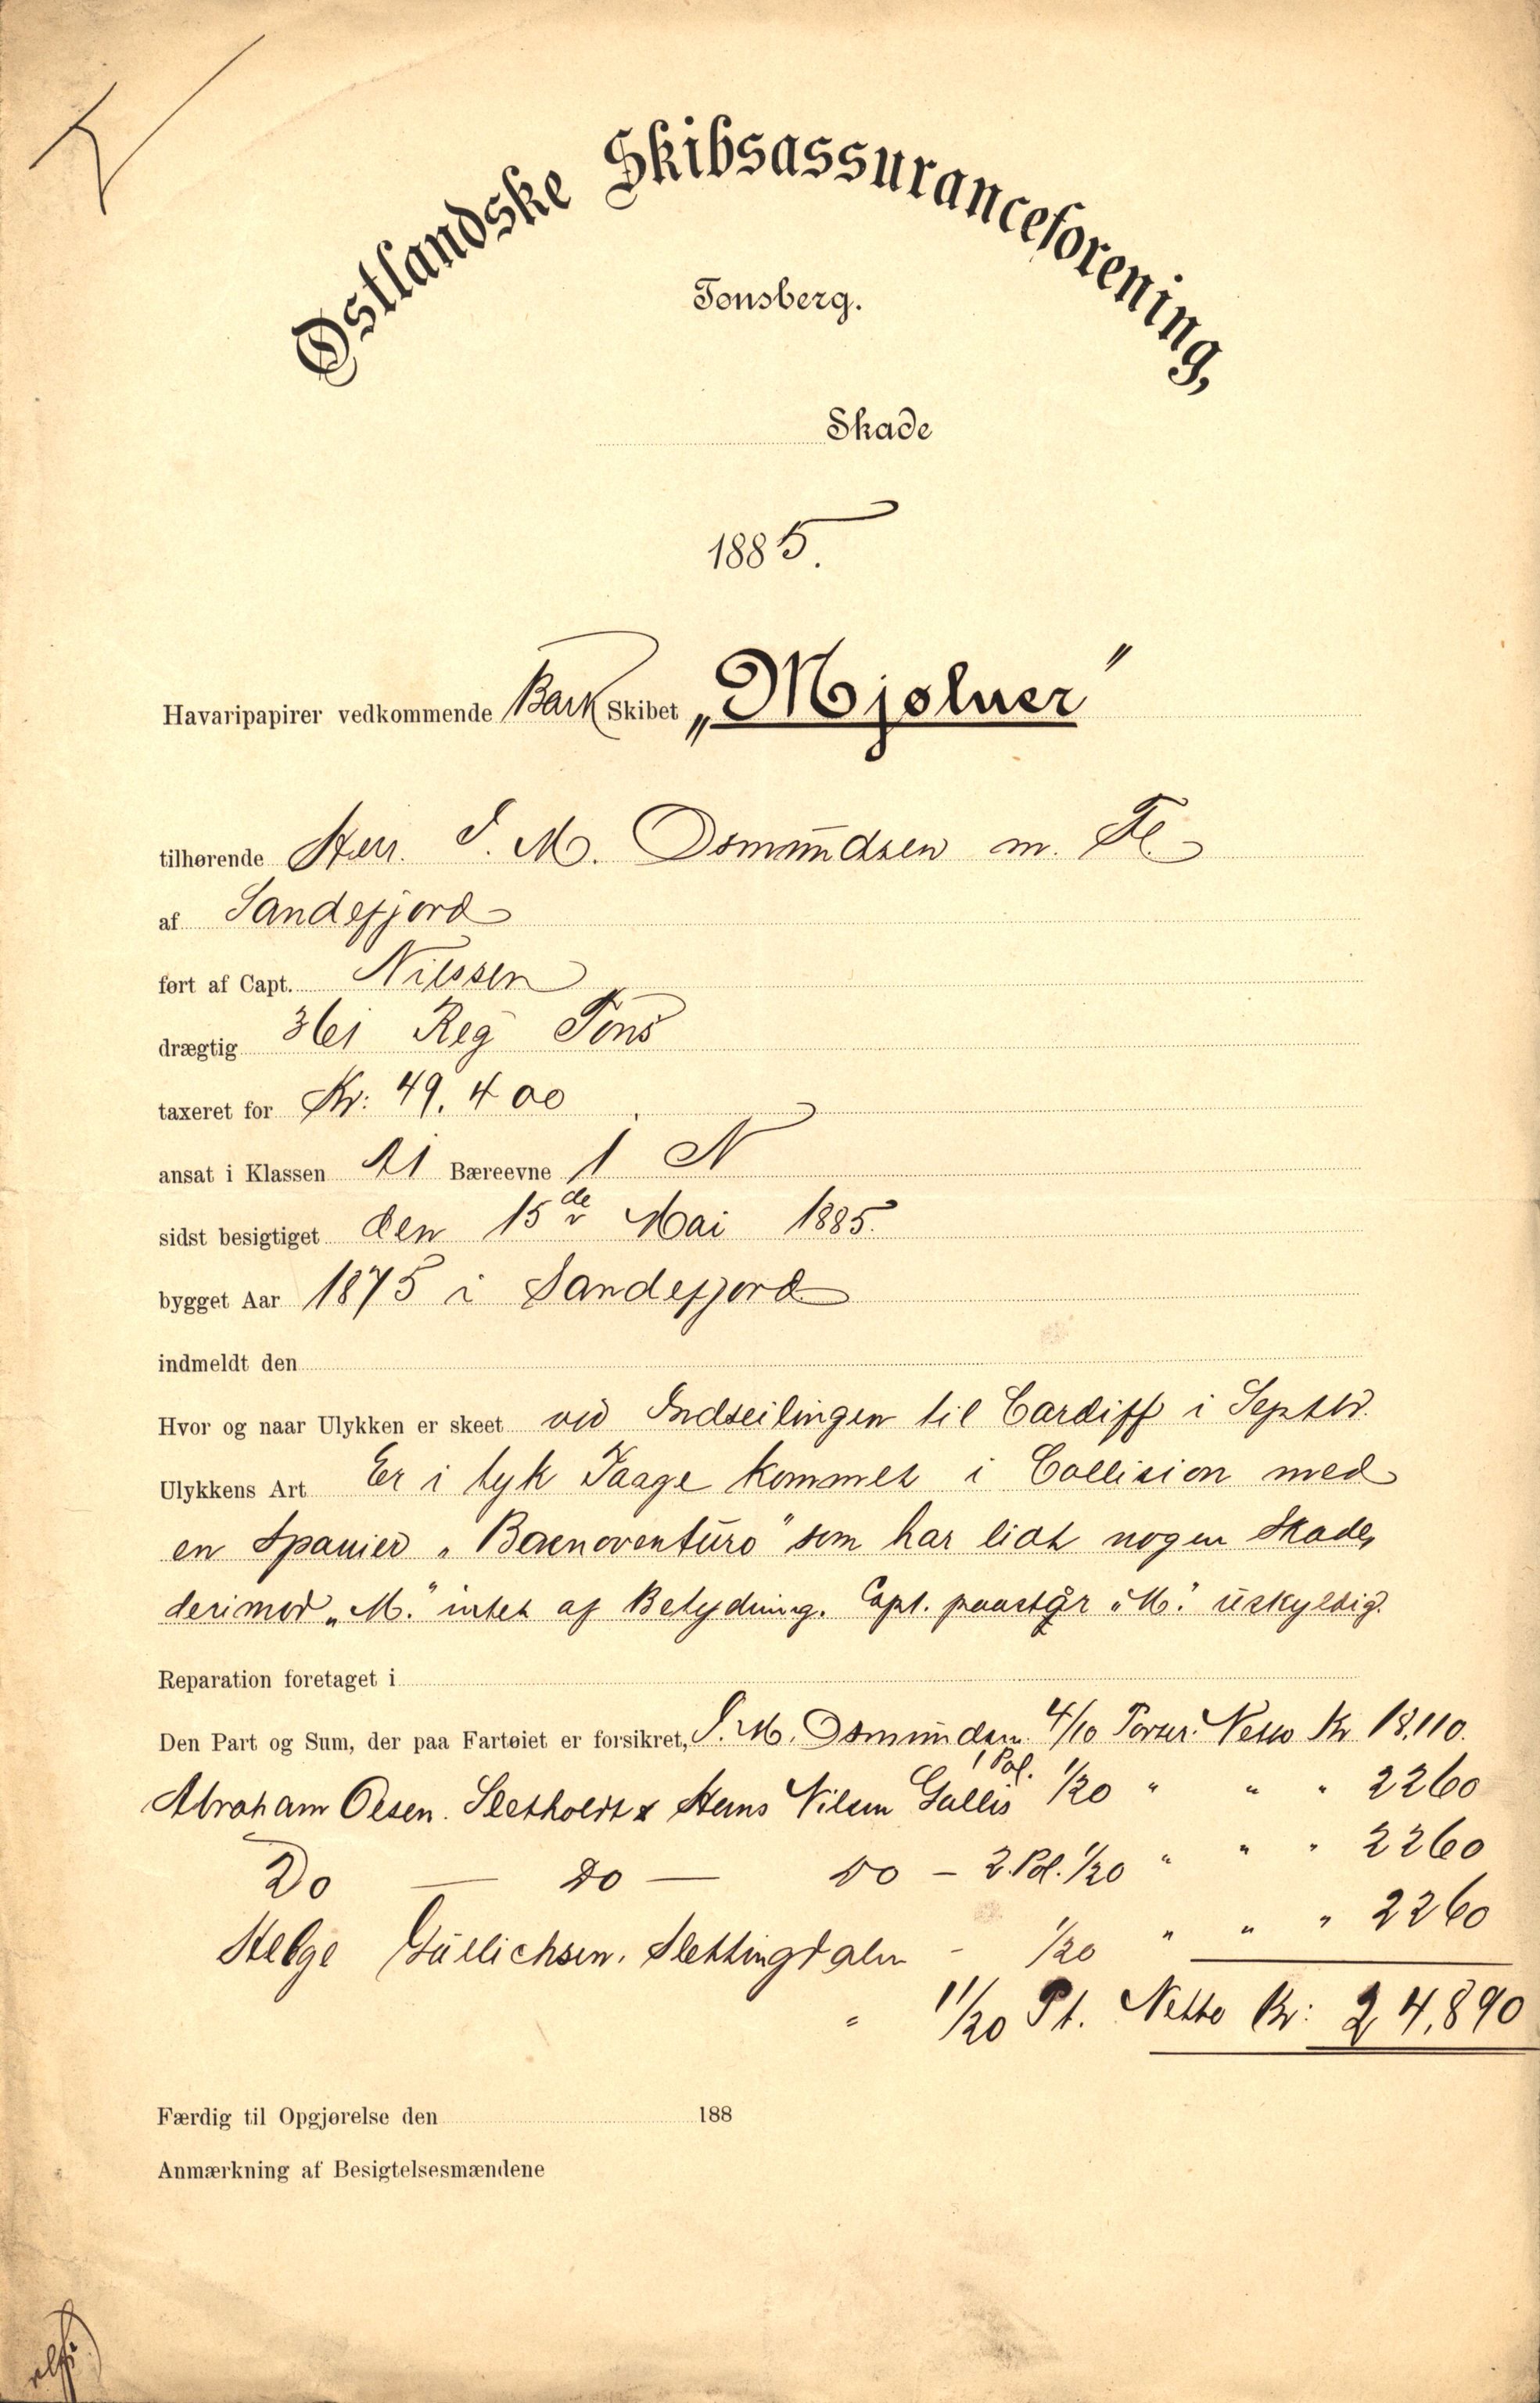 Østlandske Skibsassuranceforening,
Tønsberg.
Skade
1885.
Havaripapirer vedkommende Bark Skibet „Mjølner"
tilhørende Herr. I. M. Osmundsen m. Fl.
af Sandefjord
ført af Capt. Nilssen
drægtig 361 Reg Tons
taxeret for Kr: 49.400
ansat i Klassen A1 Bæreevne 1 N
sidst besigtiget den 15de Mai 1885.
bygget Aar 1875 i Sandefjord
indmeldt den
Hvor og naar Ulykken er skeet ved Indseilingen til Cardiff i Septbr.
Ulykkens Art Er i tyk Taage kommet i Collision med
en Spanier „ som har lidt nogen Skade,
derimod „M." intet af Betydning. Capt. paastår „M." uskyldig.
Reparation foretaget i
Den Part og Sum, der paa Fartøiet er forsikret, I. M. Osmundsen 4/10 Netto Kr 18.110.
Abraham Olsen. & Hans Nilsen 1 Pol. 1/20 " " " 2260
Do — Do — Do — 2. Pol. 1/20 " " " 2260
Helge Gullichsen. Slettingdalen - 1/20 " " " 2260
" 11/20 Pt. Netto Kr: 24,890
Færdig til Opgjørelse den 188
Anmærkning af Besigtelsesmændene